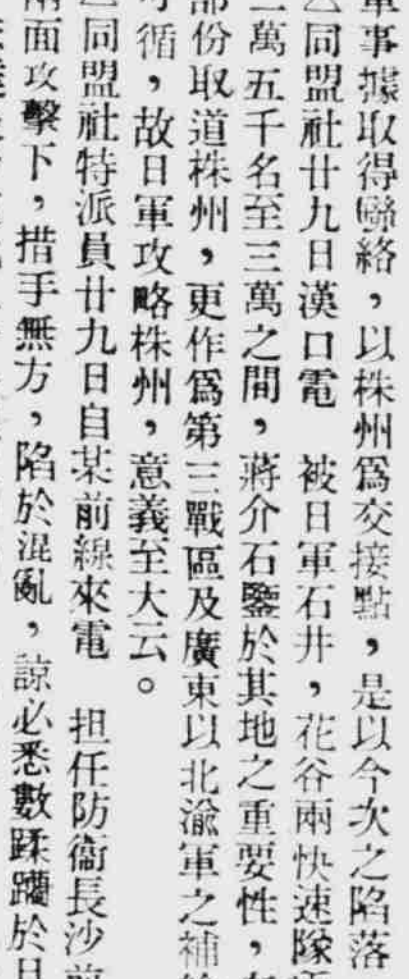 軍事據取得聯絡，以株州爲交接點，是以今次之陷落
同盟社廿九日漢口電　被日軍石井，花谷兩快速隊
萬五千名至三萬之間，蔣介石鑒於其地之重要性，
部份取道株州，更作爲第三戰區及廣東以北渝軍之補
循，故日軍攻略株州，意義至大云。
同盟社特派員廿九日自某前線來電　担任防衞長沙
兩面攻擊下，措手無方，陷於混亂，諒必悉數蹂躪於日